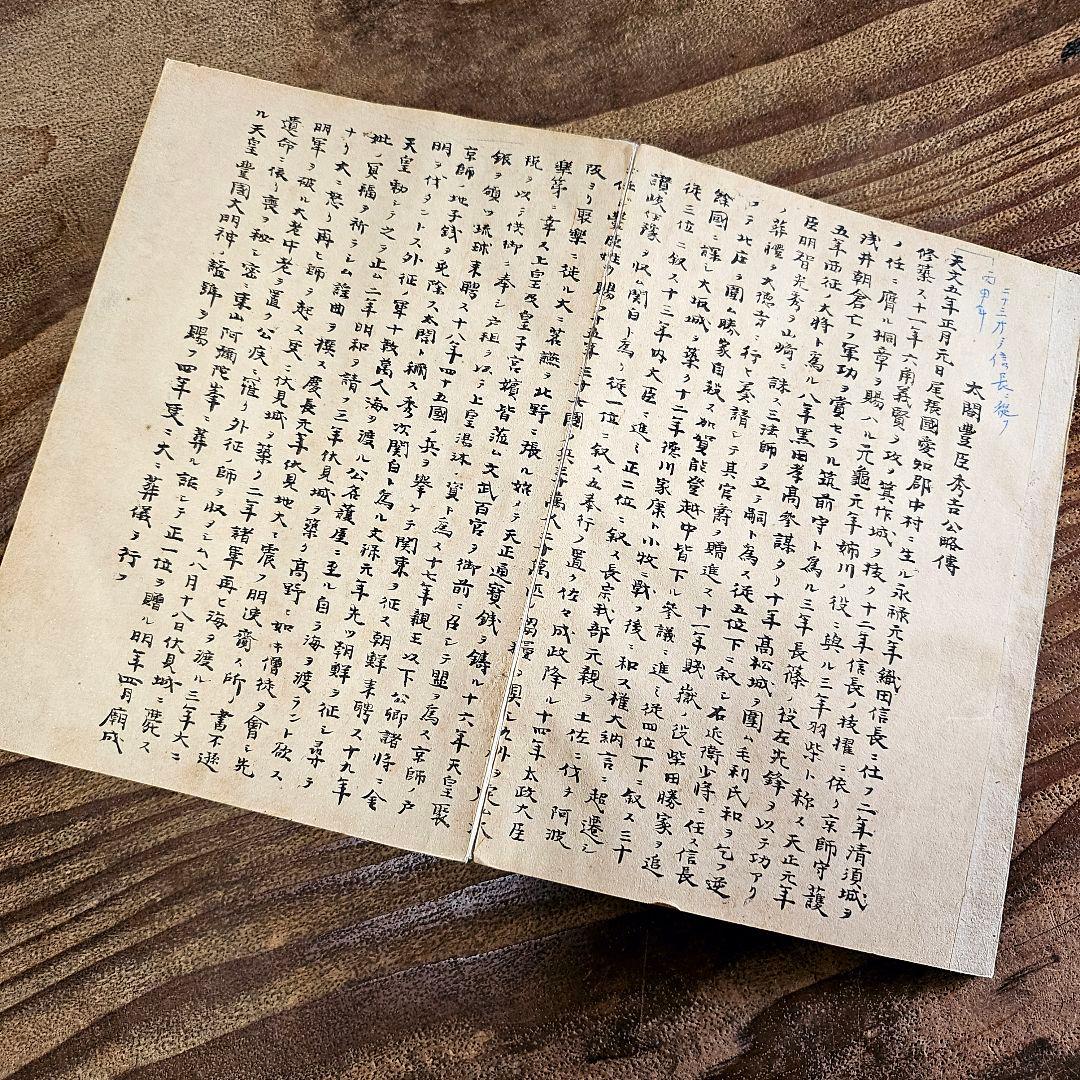 太閤豊臣秀吉公略傳
二十三才ヨリ信長ニ従フ
丙申年
天文五年正月元日尾張國愛知郡中村ニ生ル永禄元年織田信長ニ仕フ二年清須城ヲ
修築ス十一年六角義賢ヲ攻メ箕作城ヲ抜ク十二年信長ノ枝擢ニ依リ京師守護
ノ任ニ膺ル桐章ヲ賜ハル元龜元年姉川ノ役ニ與ル三年羽柴ト称ス天正元年
浅井朝倉亡フ軍功ヲ賞セラル筑前守ト為ル三年長篠ノ役左先鋒ヲ以テ功アリ
五年西征ノ大将ト為ル八年黒田孝高参謀タリ十年高松城ヲ圍ム毛利氏和ヲ乞フ逆
臣明智光秀ヲ山崎ニ誅ス三法師ヲ立テ嗣ト為ス従五位下ニ叙シ右近衛少将ニ任ス信長
ノ葬禮ヲ大徳寺ニ行ヒ奏請シテ其官爵ヲ贈進ス十一年賤ヶ嶽ノ役柴田勝家ヲ追
フテ北庄ヲ圍ム勝家自殺ス加賀能登越中皆下ル参議ニ進ミ従四位下ニ叙ス三十
餘國ニ課シ大坂城ヲ築ク十二年徳川家康ト小牧ニ戦ヲ後ニ和ス權大納言ニ起遷シ
従三位ニ叙ス十三年内大臣ニ進ミ正二位ニ叙ス長宗我部元親ヲ土佐ニ伐チ阿波
讃岐伊豫ヲ収ム関白ト為リ従一位ニ叙ス五奉行ヲ置ク佐々成政降ル十四年太政大臣
ニ任シ豊臣姓ヲ賜フ十五年三十七國ノ兵三十萬人二十萬匹ノ糧ヲ具シ九州ヲ定ム大
阪ヨリ聚樂ニ徙ル大ニ茗讌ヲ北野ニ張ル始メテ天正通寳銭ヲ鋳ル十六年天皇聚
樂第ニ幸ス上皇及皇子宮嬪皆蒞ム文武百官ヲ御前ニ召シテ盟ヲ為ス京師ノ戸
税ヲ以テ供御ニ奉シ戸租ヲ以テ上皇湯沐ノ資ト為ス十七年親王以下公卿諸将ニ金
銀ヲ頒ツ琉球来聘ス十八年四十五國ノ兵ヲ挙ケテ関東ヲ征ス朝鮮来聘ス十九年
京師ノ地子銭ヲ免除ス太閤ト稱ス秀次関白ト為ル文禄元年先ツ朝鮮ヲ征シ尋テ
明ヲ伐タントス外征ノ軍十数萬人海ヲ渡ル公名護屋ニ至ル自ラ海ヲ渡ラント欲ス
天皇勅シテ之ヲ止ム二年明和ヲ請フ三年伏見城ヲ築ク高野ニ如キ僧徒ヲ會シ先
妣ノ冥福ヲ祈ラシム謡曲ヲ撰ス慶長元年伏見地大ニ震フ明使齎ス所ノ書不遜
ナリ大ニ怒リ再ヒ師ヲ起ス更ニ伏見城ヲ築ク二年諸軍再ヒ海ヲ渡ル三年大ニ
明軍ヲ破ル大老中老ヲ置ク公疾ニ罹リ外征ノ師ヲ収メシム八月十八日伏見城ニ薨ス
遺命ニ依リ喪ヲ秘シ密ニ東山阿彌陀峯ニ葬ル詔シテ正一位ヲ贈ル明年四月廟成
ル天皇豊國大明神ノ諡号ヲ賜フ四年更ニ大ニ葬儀ヲ行フ